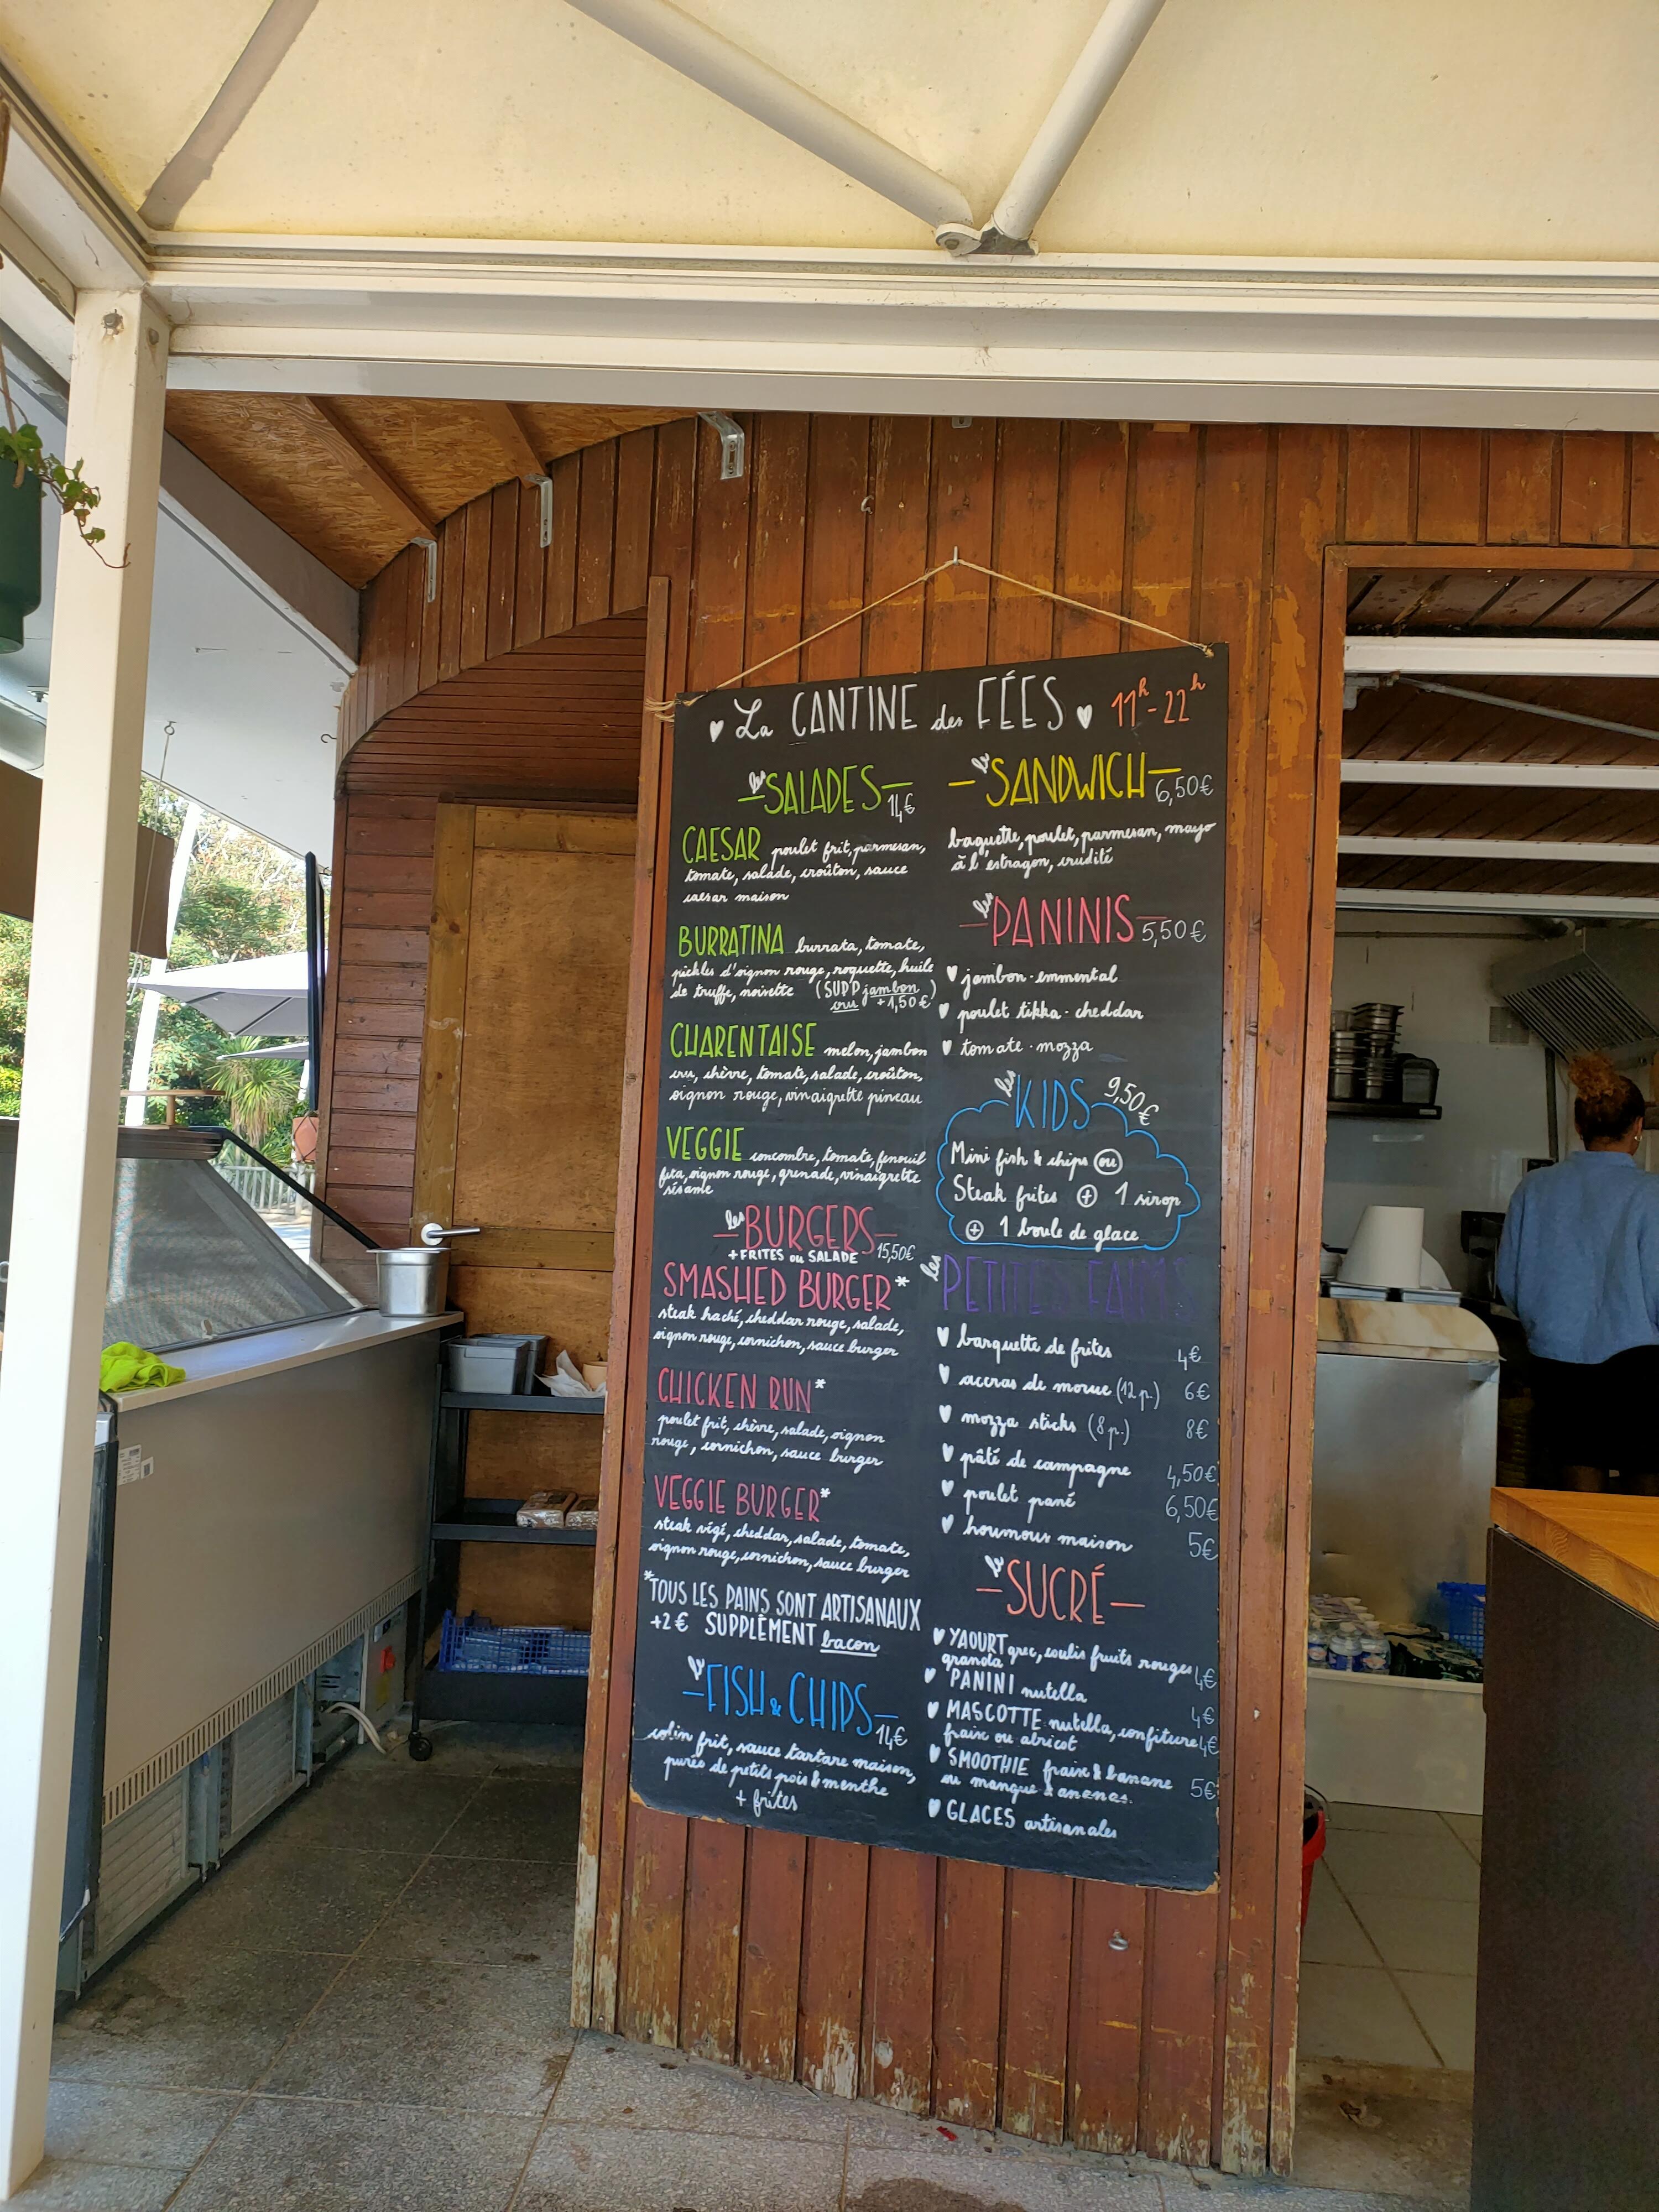 La CANTINE des FÉES 11h-22h
les SALADES 14€
CAESAR poulet frit, parmesan,
tomate, salade, croûton, sauce
caesar maison
BURRATINA burrata, tomate,
pickles d'oignon rouge, roquette, huile
de truffe, noisette (SUPP jambon
cru +1,50€)
CHARENTAISE melon, jambon
cru, chèvre, tomate, salade, croûton,
oignon rouge, vinaigrette pineau
VEGGIE concombre, tomate, fenouil
feta, oignon rouge, grenade, vinaigrette
sésame
les BURGERS 15,50€
+ FRITES ou SALADE
SMASHED BURGER*
steak haché, cheddar rouge, salade,
oignon rouge, cornichon, sauce burger
CHICKEN RUN*
poulet frit, chèvre, salade, oignon
rouge, cornichon, sauce burger
VEGGIE BURGER*
steak végé, cheddar, salade, tomate,
oignon rouge, cornichon, sauce burger
*TOUS LES PAINS SONT ARTISANAUX
+2€ SUPPLÉMENT bacon
le FISH & CHIPS 14€
colin frit, sauce tartare maison,
purée de petits pois & menthe
+ frites
le SANDWICH 6,50€
baguette, poulet, parmesan, mayo
à l'estragon, crudité
les PANINIS 5,50€
jambon - emmental
poulet tikka - cheddar
tomate - mozza
les KIDS 9,50€
Mini fish & chips ou
Steak frites + 1 sirop
+ 1 boule de glace
les PETITES FAIMS
barquette de frites 4€
accras de morue (12 p.) 6€
mozza sticks (8 p.) 8€
pâté de campagne 4,50€
poulet pané 6,50€
houmous maison 5€
le SUCRÉ
YAOURT grec, coulis fruits rouges
granola 4€
PANINI nutella 4€
MASCOTTE nutella, confiture
fraise ou abricot 4€
SMOOTHIE fraise & banane
ou mangue & ananas. 5€
GLACES artisanales